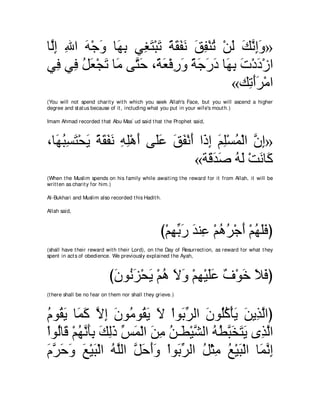 «وَإِنَّكَ لَنْ تُنْفِقَ نَفَقَةً تَبْتَغِي بِهَا وَجْهَ اللهِ إِلَّا
ازْدَدْتَ بِهَا دَرَجَةً وَرِفْعَةً، حَتَّى مَا تَجْعَلُ فِي فِي
امْرَأَتِك»
(You will not spend charity with which you seek Allah's Face, but you will ascend a higher
degree and status because of it, including what you put in your wife's mouth.)
Imam Ahmad recorded that Abu Mas`ud said that the Prophet said,
«إِنَّ الْمُسْلِمَ إِذَا أَنْفَقَ عَلَى أَهْلِهِ نَفَقَةً يَحْتَسِبُهَا،
كَانَتْ لَهُ صَدَقَة»
(When the Muslim spends on his family while awaiting the reward for it from Allah, it will be
written as charity for him.)
Al-Bukhari and Muslim also recorded this Hadith.
Allah said,
(فَلَهُمْ أَجْرُهُمْ عِندَ رَبِّهِمْ)
(shall have their reward with their Lord), on the Day of Resurrection, as reward for what they
spent in acts of obedience. We previously explained the Ayah,
(فَلاَ خَوْفٌ عَلَيْهِمْ وَلاَ هُمْ يَحْزَنُونَ)
(there shall be no fear on them nor shall they grieve.)
(الَّذِينَ يَأْكُلُونَ الرِّبَواْ لاَ يَقُومُونَ إِلاَّ كَمَا يَقُومُ
الَّذِى يَتَخَبَّطُهُ الشَّيْطَـنُ مِنَ الْمَسِّ ذَلِكَ بِأَنَّهُمْ قَالُواْ
إِنَّمَا الْبَيْعُ مِثْلُ الرِّبَواْ وَأَحَلَّ اللَّهُ الْبَيْعَ وَحَرَّمَ